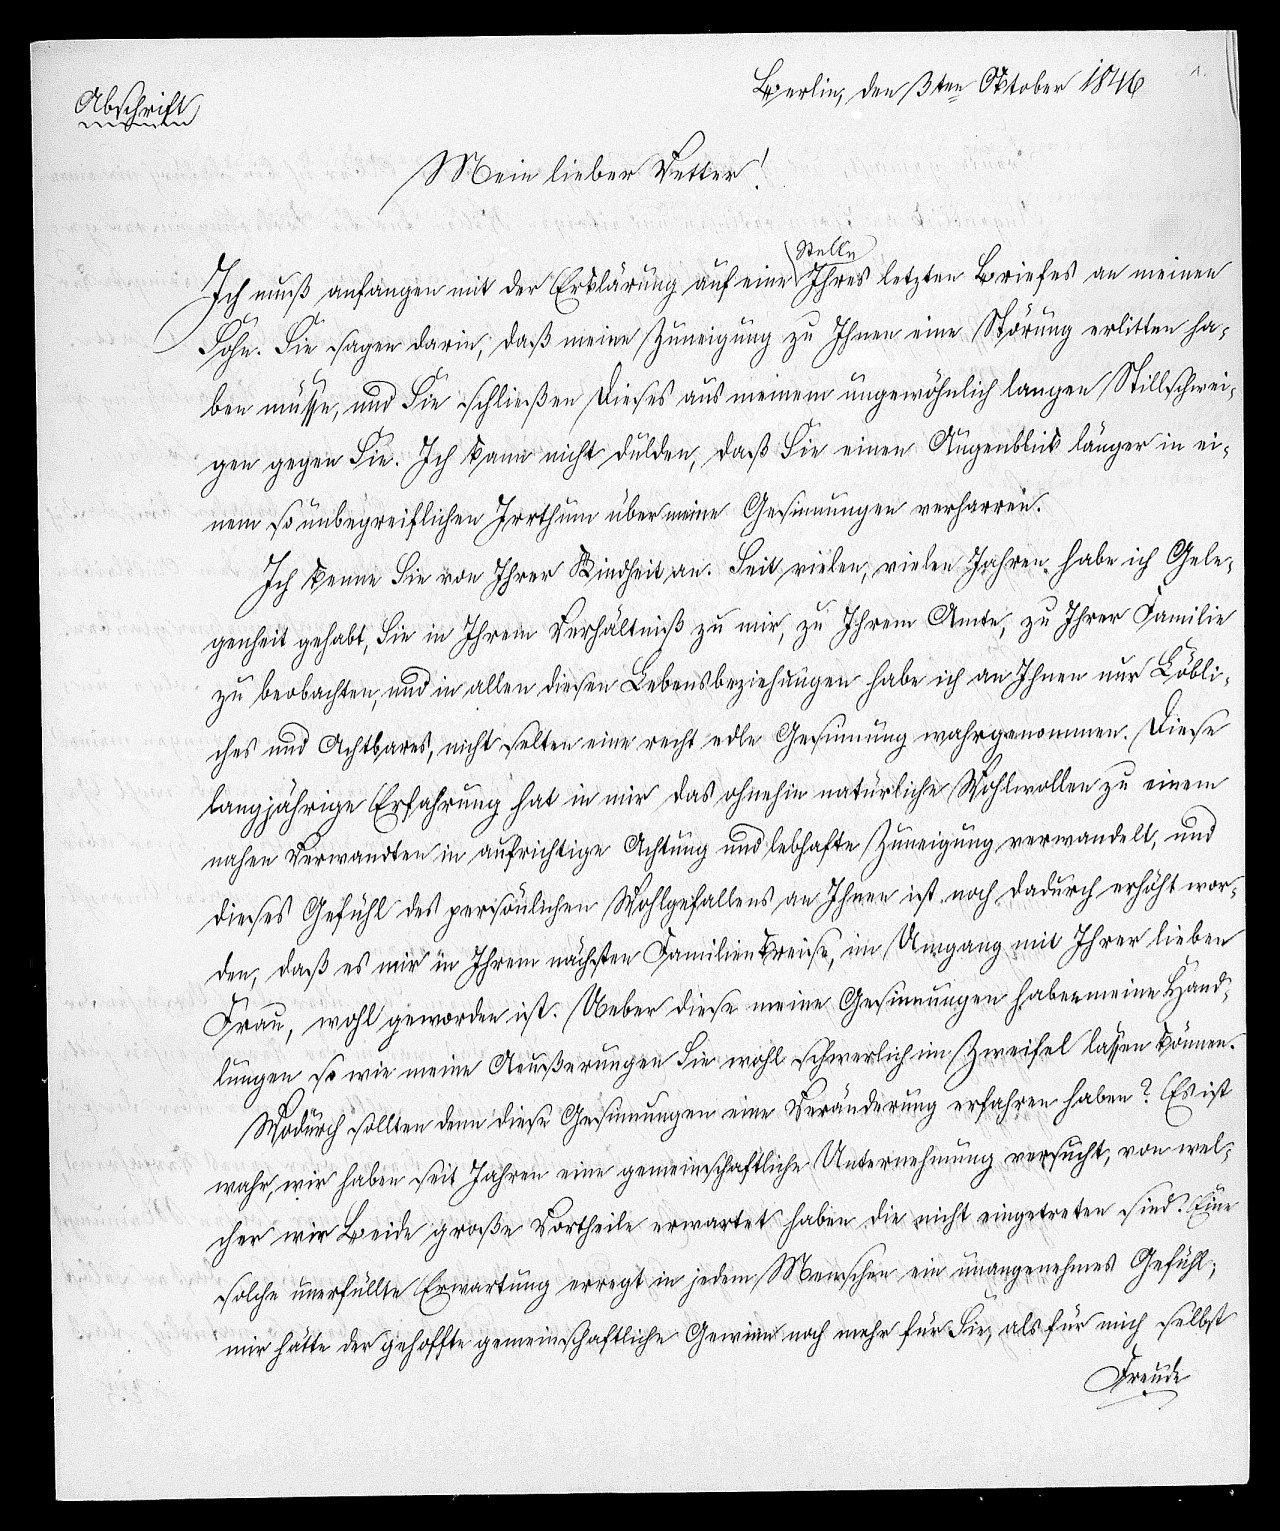 1.
Berlin, den 3ten Oktober 1846
Abschrift
Mein lieber Vetter!
Stelle
Ich muß anfangen mit der Erklärung auf eine Ihres letzten Briefes an meinen
Sohn. Sie sagen darin, daß meine Zuneigung zu Ihnen eine Störung erlitten ha-
ben müsse, und Sie schließen Dieses aus meinem ungewöhnlich langen Stillschwei-
gen gegen Sie. Ich kann nicht dulden, daß Sie einen Augenblick länger in ei-
nem so unbegreiflichen Irrthum über meine Gesinnungen verharren.
Ich kenne Sie von Ihrer Kindheit an. Seit vielen, vielen Jahren habe ich Gele-
genheit gehabt, Sie in Ihrem Verhältniß zu mir, zu Ihrem Amte, zu Ihrer Familie
zu beobachten, und in allen diesen Lebensbeziehungen habe ich an Ihnen nur Löbli-
ches und Achtbares, nicht selten eine recht edle Gesinnung wahrgenommen. Diese
langjährige Erfahrung hat in mir das ohnehin natürliche Wohlwollen zu einem
nahen Verwandten in aufrichtige Achtung und lebhafte Zuneigung verwandelt, und
dieses Gefühl des persönlichen Wohlgefallens an Ihnen ist noch dadurch erhöht wor-
den, daß es mir in Ihrem nächsten Familienkreise, im Umgang mit Ihrer lieben
Frau, wohl geworden ist. Ueber diese meine Gesinnungen haben meine Hand-
lungen so wie meine Aeußerungen Sie wohl schwerlich im Zweifel lassen können.
Wodurch sollten denn diese Gesinnungen eine Veränderung erfahren haben? Es ist
wahr, wir haben seit Jahren eine gemeinschaftliche Unternehmung versucht, von wel-
cher wir Beide große Vortheile erwartet haben die nicht eingetreten sind. Eine
solche unerfüllte Erwartung erregt in jedem Menschen ein unangenehmes Gefühl;
mir hätte der gehoffte gemeinschaftliche Gewinn noch mehr für Sie, als für mich selbst
Freude